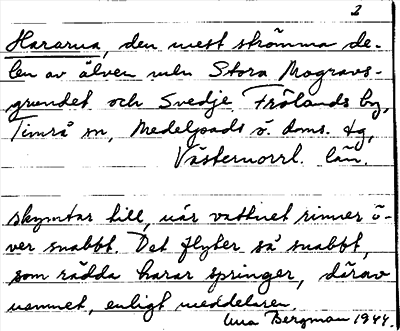 2
Hararna, den mest strömma de-
len av älven mln Stora Mogravs-
grundet och Svedje, Frölands by,
Timrå sn, Medelpads ö. doms. tg,
Västernorrl. län.
skymtar till, när vattnet rinner ö-
ver snabbt. Det flyter så snabbt,
som rädda harar springer, därav
namnet, enligt meddelaren.
Bergman 1944.